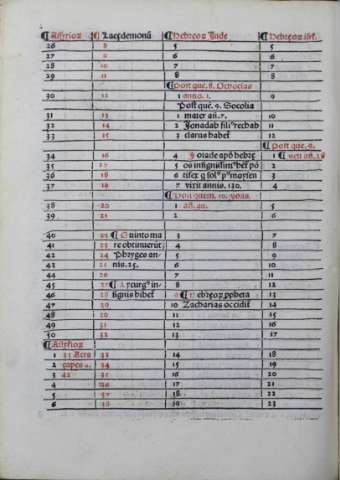 ¶ Assirioꝝ ¶ Lacedemoniū ¶ Hebreoꝝ Iude ¶ Hebreoꝝ isrl.
26 8 5 5
27 9 6 6
28 10 7 7
29 11 8 8
¶ Post quē. 8. Ochocias
30 12 1 anno. 1. 9
Post quē. 9. Gotolia
31 13 1 mater añ. 7. 10
32 14 2 Jonadab filiꝰ rechab 11
33 15 3 clarus habeť 12
¶ Post quē. 9.
34 16 4 Joiade apd hebre 1
35 17 5 os insignissimꝰ 2
36 18 6 tifex q solꝰ pꝰ moysen 3
37 19 7 vixit annis. 130. 4
38 20 1 5
39 21 2 6
40 22 ¶ Quinto ma 3 7
41 23 re obtinuerūt 4 8
42 24 Phryges an- 5 9
43 25 nis. 25. 6 10
44 26 7 11
45 27 ¶ Licurgꝰ in- 8 12
46 28 signis habeť 9 ¶ Hebreoꝝ 13
47 29 10 Zacharias occidiť 14
48 30 11 15
49 31 12 16
50 32 13 17
¶ Assirioꝝ
1 33 14 18
2 34 15 19
3 42 35 16 20
4 36 17 21
5 37 18 22
6 38 19 23